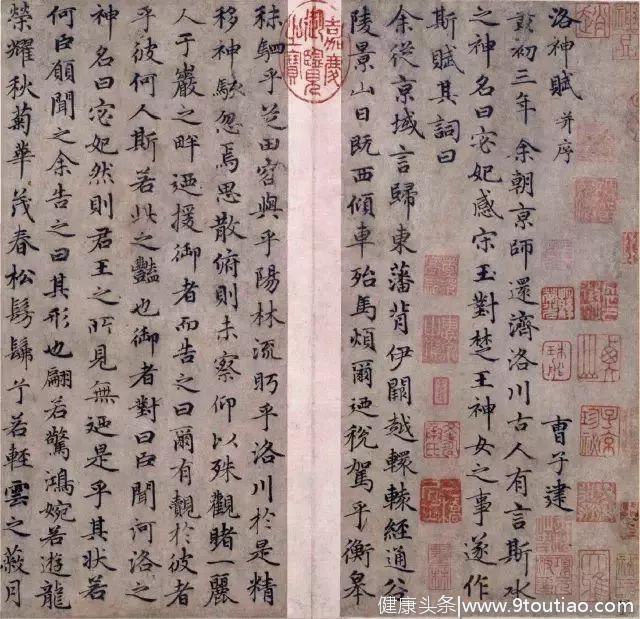 洛神賦 并序 曹子建
黃初三年余朝京師還濟洛川古人有言斯水
之神名曰宓妃感宋玉對楚王神女之事遂作
斯賦其詞曰
余從京域言歸東藩背伊闕越轘轅經通谷
陵景山日既西傾車殆馬煩爾迺稅駕乎衡皋
秣駟乎芝田容與乎陽林流眄乎洛川於是精
移神駭忽焉思散俯則未察仰以殊觀睹一麗
人于巖之畔迺援御者而告之曰爾有覿於彼者
乎彼何人斯若此之豔也御者對曰臣聞河洛之
神名曰宓妃然則君王之所見無迺是乎其狀若
何臣願聞之余告之曰其形也翩若驚鴻婉若遊龍
榮耀秋菊華茂春松髣髴兮若輕雲之蔽月
嘉慶御覽之寶
健康头条/www.9toutiao.com